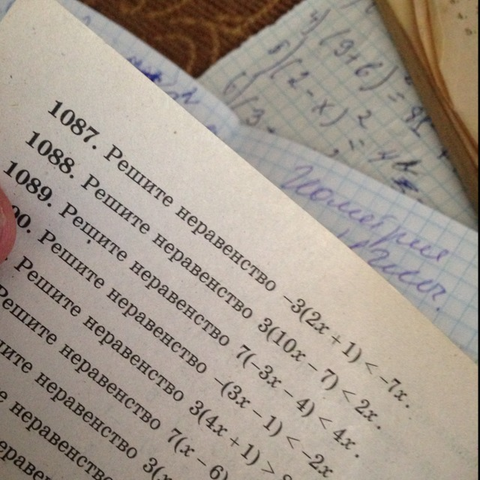 4) (9+6)
(2-x)² = 4
1087. Решите неравенство -3(2x + 1) < -7x.
1088. Решите неравенство 3(10x - 7) < 2x.
1089. Решите неравенство 7(-3x - 4) < 4x.
00. Решите неравенство -(3x - 1) < -2x
Решите неравенство 3(4x + 1) >
Решите неравенство 7(x - 6)
ите неравенство 3(x
е неравенство
неравен
геометрия